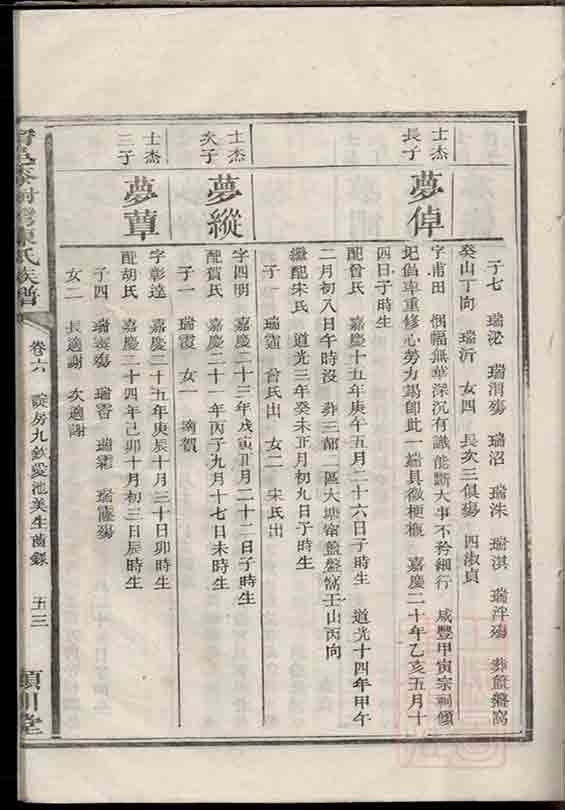 子七 瑞泌 瑞渭殤 瑞沼 瑞洙 瑞淇 瑞泙殤 葬籃盤窩
癸山丁向 瑞沂 女四 長次三俱殤 四淑貞
士杰長子
夢倬
字甫田 悃愊無華深沉有識能斷大事不矜細行 咸豐甲寅宗祠傾
圮倡率重修心勞力竭即此一端具徵梗概 嘉慶二十年乙亥五月十
四日子時生
配曾氏 嘉慶十五年庚午五月二十六日子時生 道光十四年甲午
二月初八日午時沒 葬三都二區大塘宿籃盤窩壬山丙向
繼配宋氏 道光三年癸未正月初九日子時生
子一 瑞霆 曾氏出 女二 宋氏出
士杰次子
夢縱
字四明 嘉慶二十三年戊寅正月二十二日子時生
配賀氏 嘉慶二十一年丙子九月十七日未時生
子一 瑞霞 女一 適賀
士杰三子
夢蕈
字彰達 嘉慶二十五年庚辰十月三十日卯時生
配胡氏 嘉慶二十四年己卯十月初三日辰時生
子四 瑞 殤 瑞香 瑞霜 瑞 殤
女二 長適謝 次適謝
陳氏族譜
卷六 房九欽愛池美生茵錄 五三
川堂